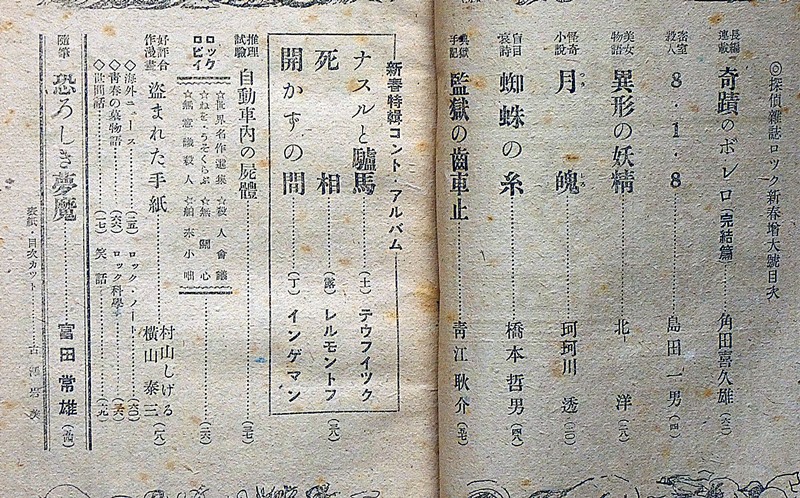 ◎探偵雑誌ロック新春增大號目次
長編連載 奇蹟のボレロ(完結篇)……角田喜久雄(六二)
密室殺人 8・1・8……島田一男(四)
美女物語 異形の妖精……北洋(一八)
怪奇小説 月魄つきしろ……珂珂川透(二〇)
盲目哀詩 蜘蛛の糸……橋本哲男(四八)
手記 監獄の歯車止……青江耿介(五七)
新春特輯コント・アルバム
ナスルと驢馬……(土)テウフイツク
死相……(露)レルモントフ
開かずの間……(丁)インゲマン
(三八)
推理試驗 自動車内の屍體……(三七)
ロックロビイ
☆世界名作選集 ☆殺人會議
☆ねを・うそくらぶ ☆無關心
☆無意識殺人 ☆舶来小咄
……(二六)
好評合作漫畫 盗まれた手紙……村山しげる 横山泰三(一八)
◇海外ニュース……(三五) ロック・ノート……(六〇)
◇靑春の墓物語……(六六) ロック科學……(三六)
◇世間話……(一七) 笑話……(一九)
隨筆 恐ろしき夢魔……富田常雄(四四)
表紙・目次カット……古澤岩美